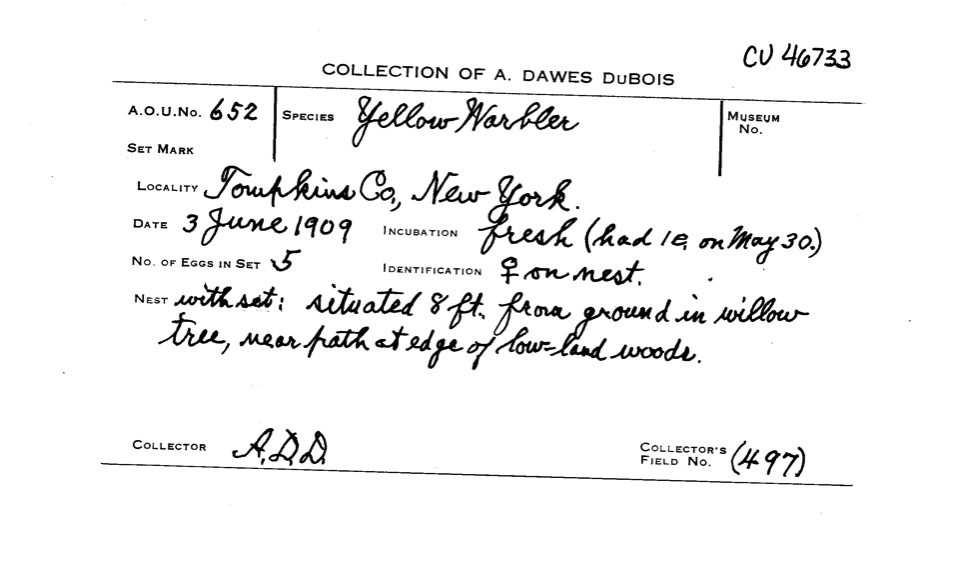 CU 46733
COLLECTION OF A. DAWES DUBOIS
A.O.U.No. 652 SPECIES Yellow Warbler MUSEUM No.
SET MARK
LOCALITY Tompkins Co., New York.
DATE 3 June 1909 INCUBATION fresh (had 1e. on May 30.)
No. OF EGGS IN SET 5 IDENTIFICATION ♀ on nest.
NEST with set: situated 8 ft. from ground in willow
tree, near path at edge of low-land woods.
COLLECTOR A.D.D. COLLECTOR'S FIELD No. (497)